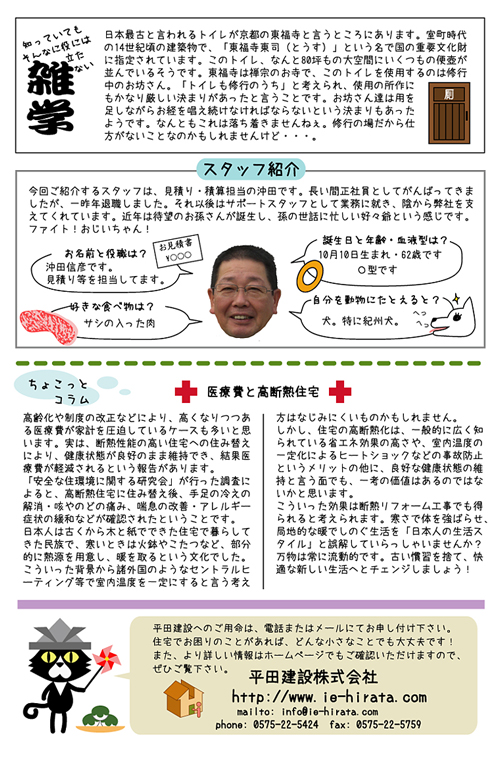 知っていても
そんなに役には
立た
ない
雑学
日本最古と言われるトイレが京都の東福寺と言うところにあります。室町時代
の14世紀頃の建築物で、「東福寺東司（とうす）」という名で国の重要文化財
に指定されています。このトイレ、なんと80坪もの大空間にいくつもの便壺が
並んでいるそうです。東福寺は禅宗のお寺で、このトイレを使用するのは修行
中のお坊さん。「トイレも修行のうち」と考えられ、使用の所作に
もかなり厳しい決まりがあったと言うことです。お坊さん達は用を
足しながらお経を唱え続けなければならないという決まりもあった
ようです。なんともこれは落ち着きませんねぇ。修行の場だから仕
方がないことなのかもしれませんけど・・・。
スタッフ紹介
今回ご紹介するスタッフは、見積り・積算担当の沖田です。長い間正社員としてがんばってきま
したが、一昨年退職しました。それ以後はサポートスタッフとして業務に就き、陰から弊社を支
えてくれています。近年は待望のお孫さんが誕生し、孫の世話に忙しい好々爺という感じです。
ファイト！おじいちゃん！
お名前と役職は？
沖田信彦です。
見積り等を担当してます。
お見積書
¥○○○
誕生日と年齢・血液型は？
10月10日生まれ・62歳です
O型です
好きな食べ物は？
サシの入った肉
自分を動物にたとえると？
犬。特に紀州犬。
へっ
へっ
ちょこっと
コラム
医療費と高断熱住宅
高齢化や制度の改正などにより、高くなりつつあ
る医療費が家計を圧迫しているケースも多いと思
います。実は、断熱性能の高い住宅への住み替え
により、健康状態が良好のまま維持でき、結果医
療費が軽減されるという報告があります。
「安全な住環境に関する研究会」が行った調査に
よると、高断熱住宅に住み替え後、手足の冷えの
解消・咳やのどの痛み、喘息の改善・アレルギー
症状の緩和などが確認されたということです。
日本人は古くから木と紙でできた住宅で暮らして
きた民族で、寒いときは火鉢やこたつなど、部分
的に熱源を用意し、暖を取るという文化でした。
こういった背景から諸外国のようなセントラルヒ
ーティング等で室内温度を一定にすると言う考え
方はなじみにくいものかもしれません。
しかし、住宅の高断熱化は、一般的に広く知
られている省エネ効果の高さや、室内温度の
一定化によるヒートショックなどの事故防止
というメリットの他に、良好な健康状態の維
持と言う面でも、一考の価値はあるのではな
いかと思います。
こういった効果は断熱リフォーム工事でも得
られると考えられます。寒さで体を強ばらせ、
局地的な暖でしのぐ生活を「日本人の生活ス
タイル」と誤解していらっしゃいませんか？
万物は常に流動的です。古い慣習を捨て、快
適な新しい生活へとチェンジしましょう！
平田建設へのご用命は、電話またはメールにてお申し付け下さい。
住宅でお困りのことがあれば、どんな小さなことでも大丈夫です！
また、より詳しい情報はホームページでもご確認いただけますので、
ぜひご覧下さい。
平田建設株式会社
http://www.ie-hirata.com
mailto: info@ie-hirata.com
phone: 0575-22-5424 fax: 0575-22-5759